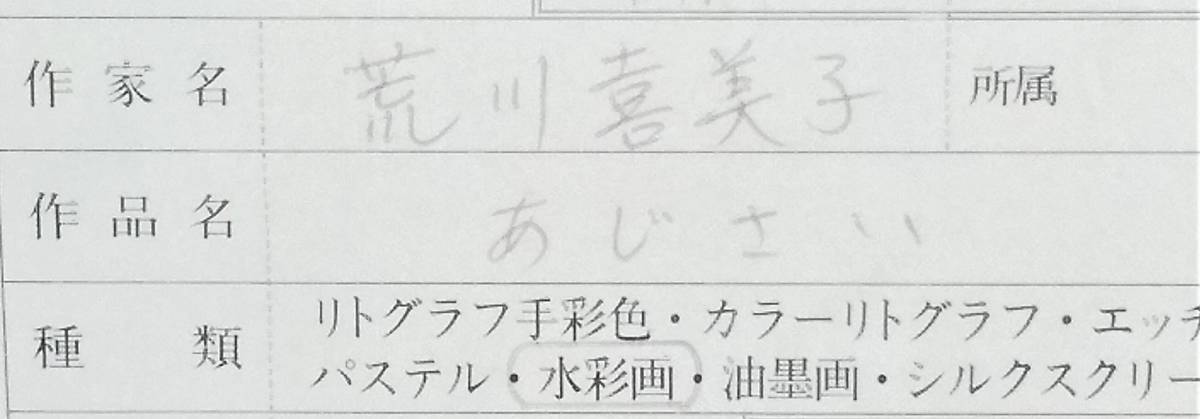 作家名 荒川喜美子 所属
作品名 あじさい
種類 リトグラフ手彩色・カラーリトグラフ・エッチ
パステル・水彩画・油墨画・シルクスクリー